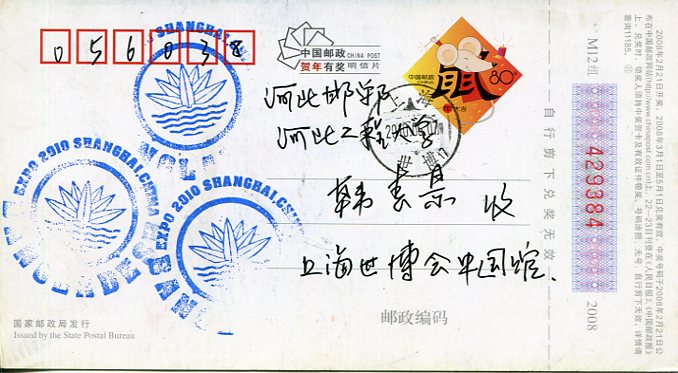 056038
中国邮政 CHINA POST
贺年有奖 明信片
中国邮政
CHINA
80分
鼠大吉
河北邯郸
河北工程大学
上海
世博
收
上海世博会中国馆
EXPO 2010 SHANGHAI,CHINA
EXPO 2010 SHANGHAI,
SHANGHAI,
BANGLADESH
国家邮政局发行
Issued by the State Postal Bureau
邮政编码
自行剪下兑奖无效
M12组
429384
2008
2008年2月21日开奖,2008年3月1日至5月1日兑奖有效,中奖号码于2008年2月21日公
布在中国邮政网站(http://www.chinapost.com.cn)上,22—23日刊登在《人民日报》、《中国邮政报》
上,兑奖时,领奖人须持中奖贺卡及有效证件领奖,号码涂损、无号、自行剪下无效,详情请
查询11185。